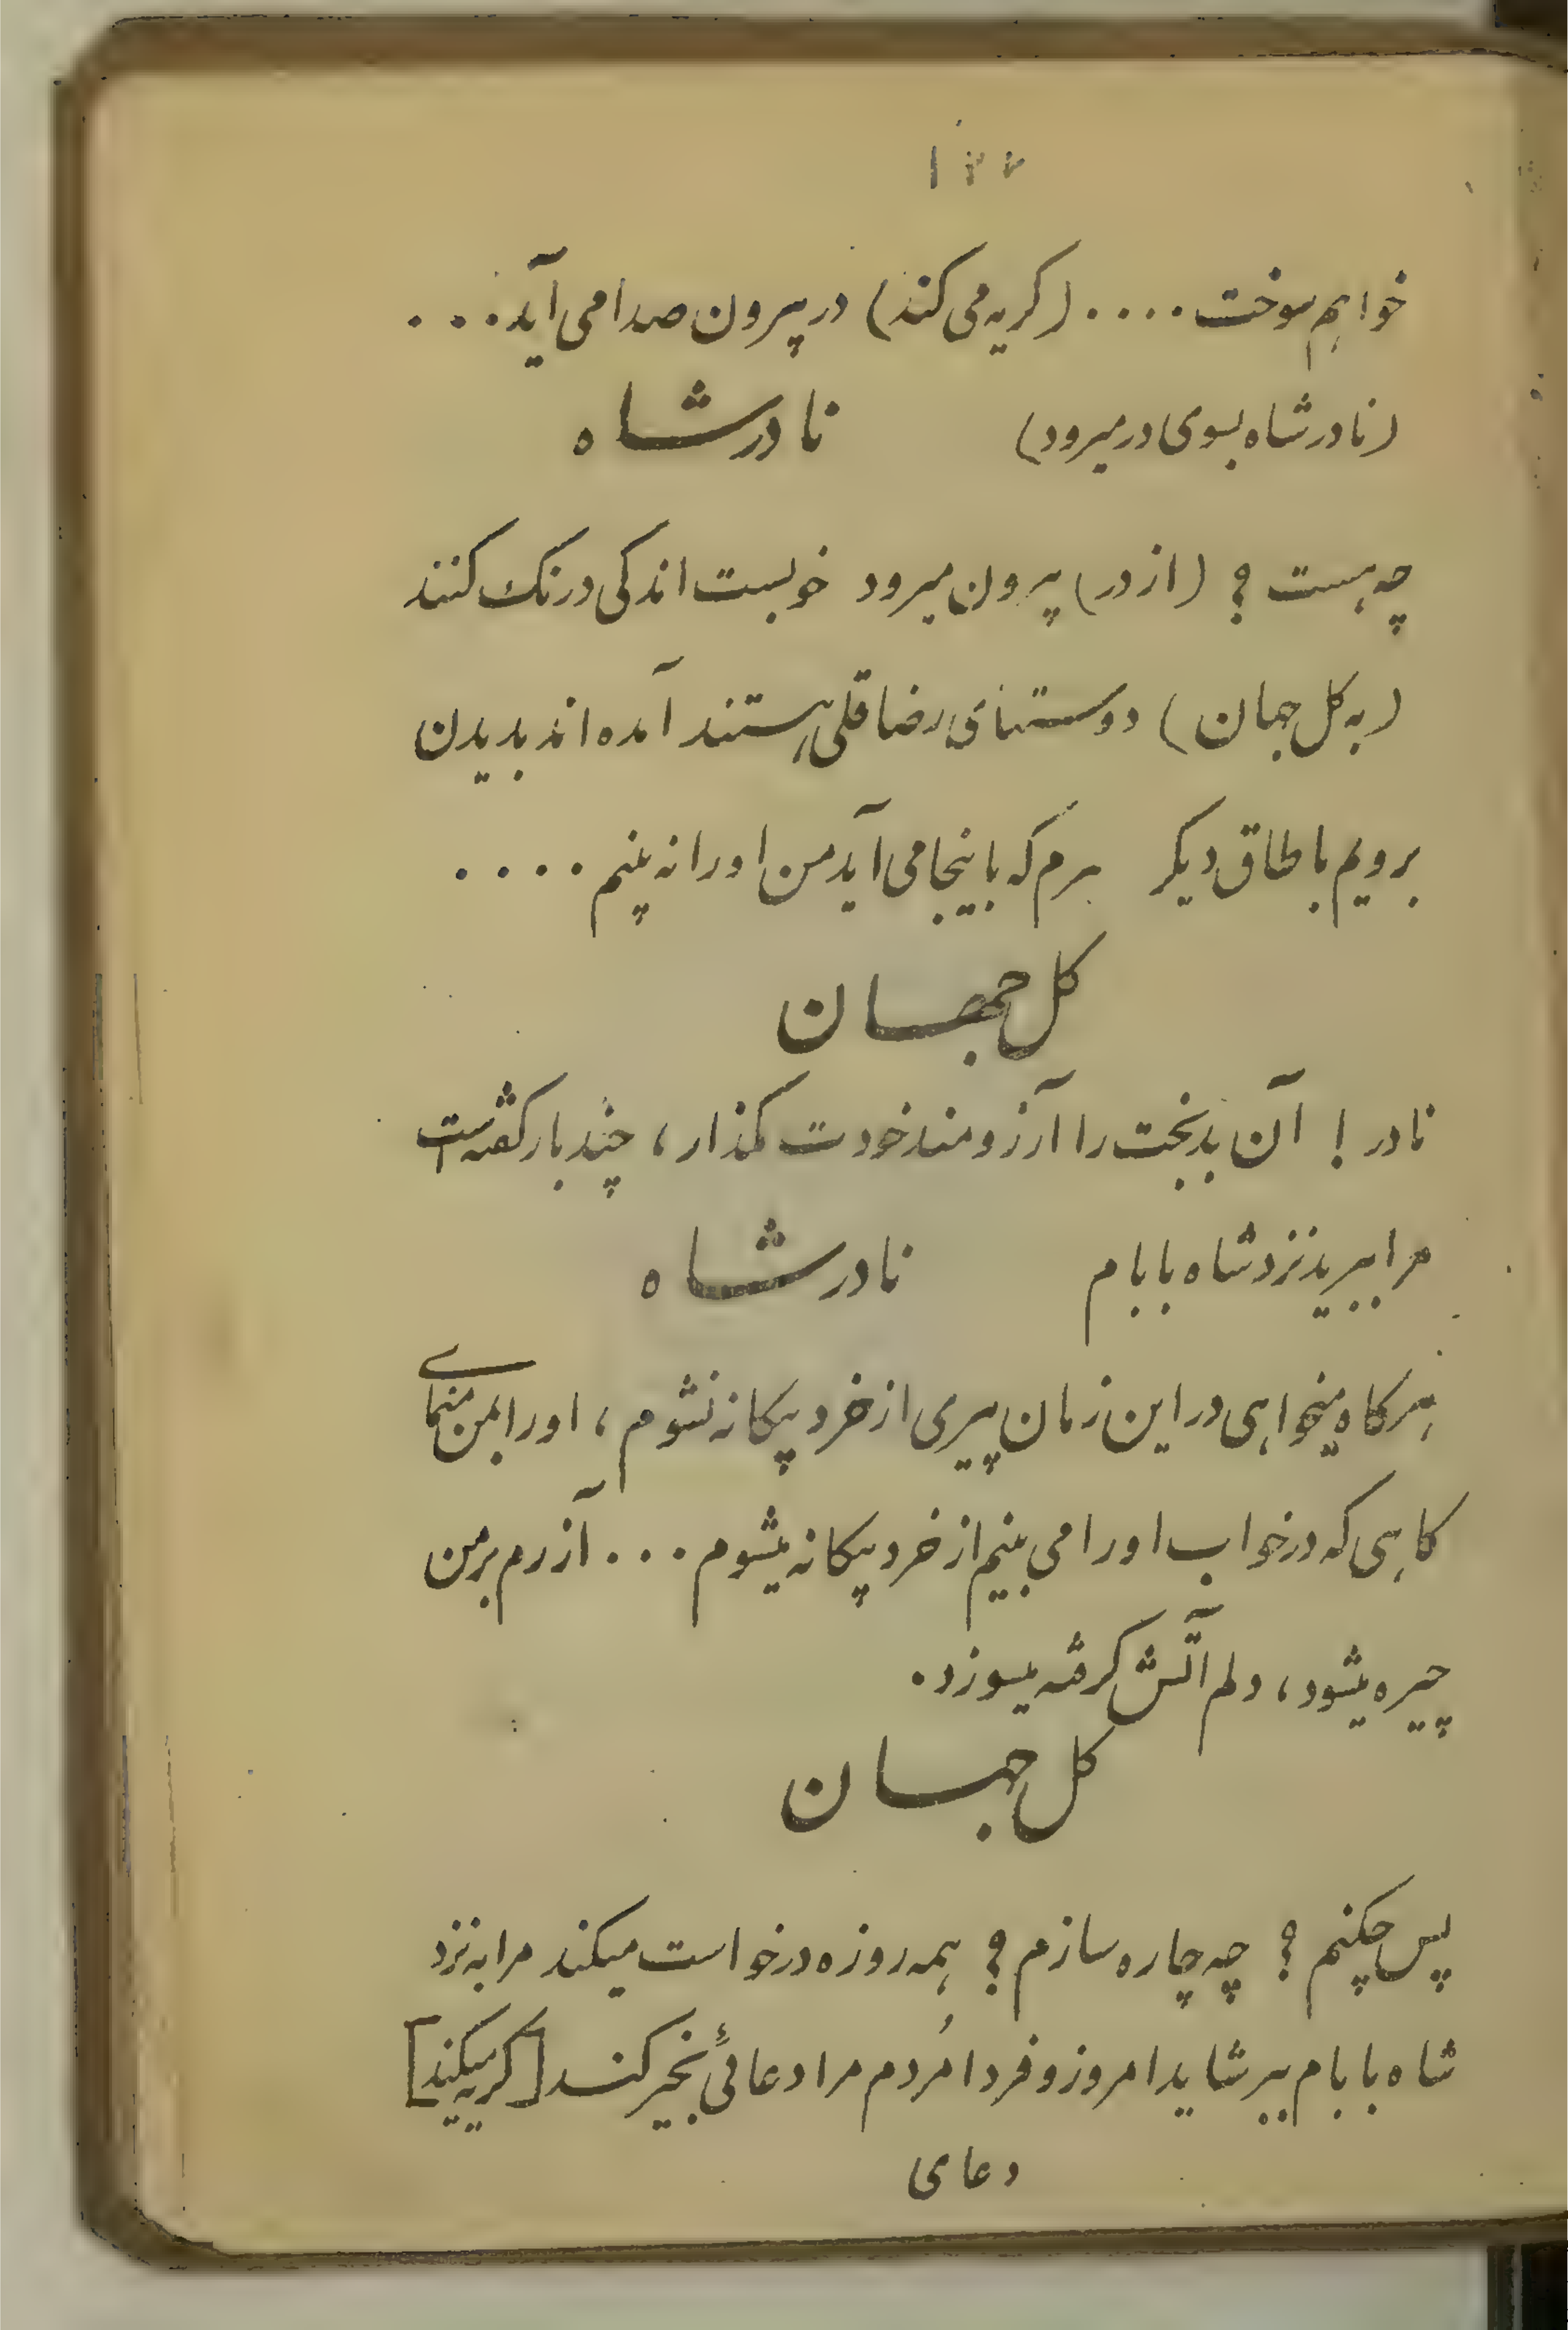 ۱۲۲
خواهم سوخت .... (کریه می کند) در پیرون صدا می آید ...
(نادرشاه بسوی در میرود) نادرشاه
چه هست ؟ (از در) پیرون میرود خوبست اندکی درنک کنند
(به کل جهان) دوستنای رضاقلی هستند آمده اند بدیدن
برویم باطاق دیکر هرم که باینجا می آید من او را نه پنم ....
کل جهان
نادر ! آن بدبخت را آرزومند خودت مکذار ، چند بار کفته است
مرا ببرید نزد شاه بابام نادرشاه
هرکاه میخواهی در این زمان پیری از خرد پیکانه نشوم ، او را بمن منمای
کاهی که در خواب او را می بینم از خرد پیکانه میشوم ... آزرم بر من
چیره میشود ، دلم آتش کرفته میسوزد .
کل جهان
پس چکنم ؟ چه چاره سازم ؟ همه روزه درخواست میکند مرا به نزد
شاه بابام ببر شاید امروز و فردا مُردم مرا دعائی بخیر کند [کریه میکند]
دعای